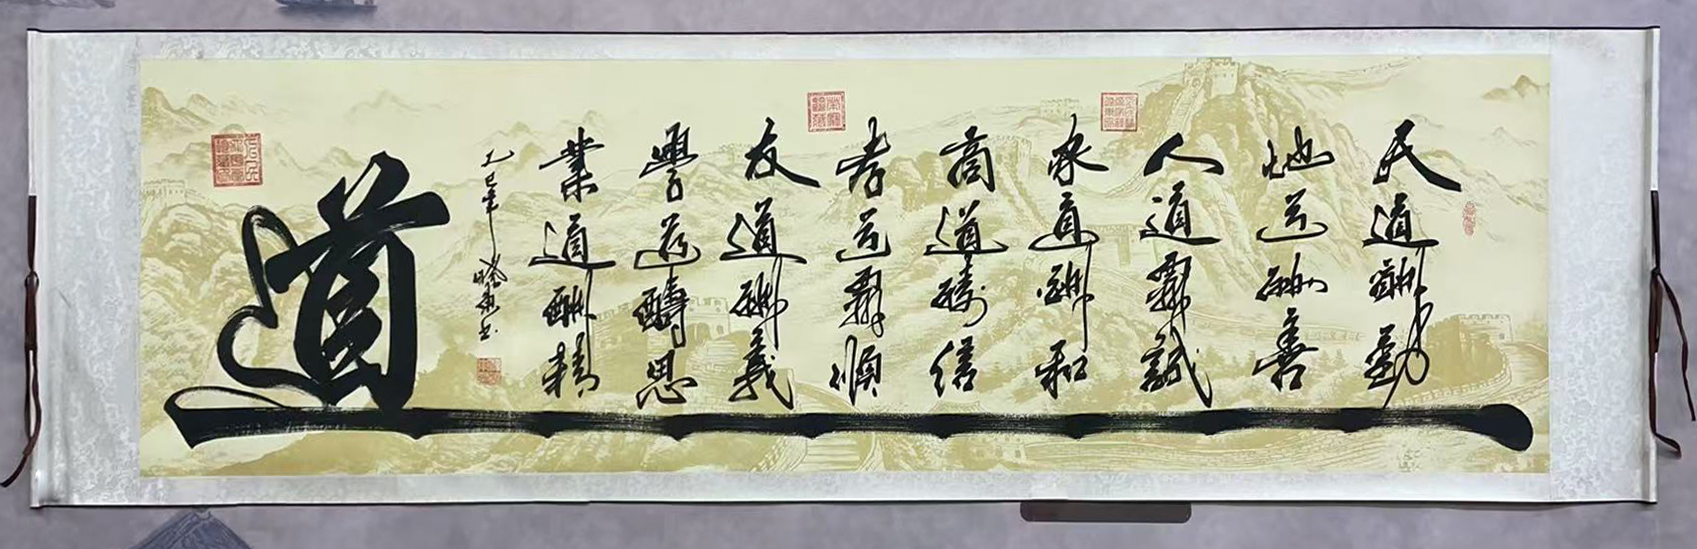 天道酬勤
地道酬善
人道酬誠
家道酬和
商道酬信
孝道酬順
友道酬義
學道酬思
業道酬精
乙巳年
道